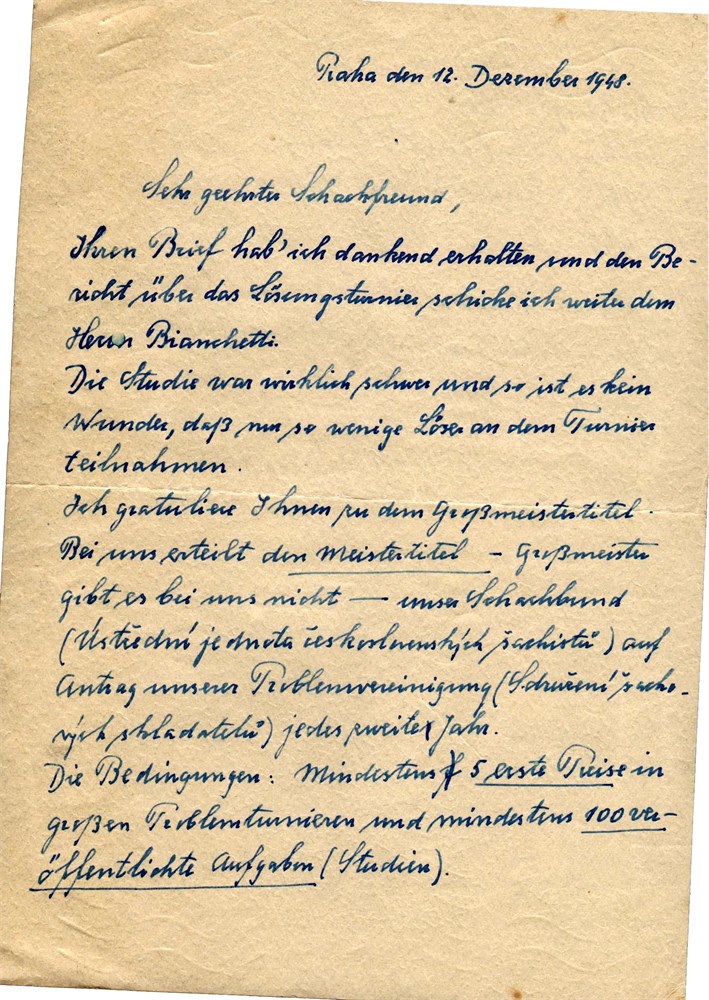 Praha den 12. Dezember 1948.
Sehr geehrter Schachfreund,
Ihren Brief hab' ich dankend erhalten und den Be-
richt über das Lösungsturnier schicke ich weiter dem
Herrn Bianchetti.
Die Studie war wirklich schwer und so ist es kein
Wunder, daß nur so wenige Löser an dem Turnier
teilnahmen.
Ich gratuliere Ihnen zu dem Großmeistertitel.
Bei uns erteilt den Meistertitel – Großmeister
gibt es bei uns nicht — unser Schachbund
(Ústřední jednota československých šachistů) auf
Antrag unserer Problemvereinigung (Sdružení šacho-
vých skladatelů) jedes zweite Jahr.
Die Bedingungen: Mindestens 5 erste Preise in
großen Problemturnieren und mindestens 100 ver-
öffentlichte Aufgaben (Studien).